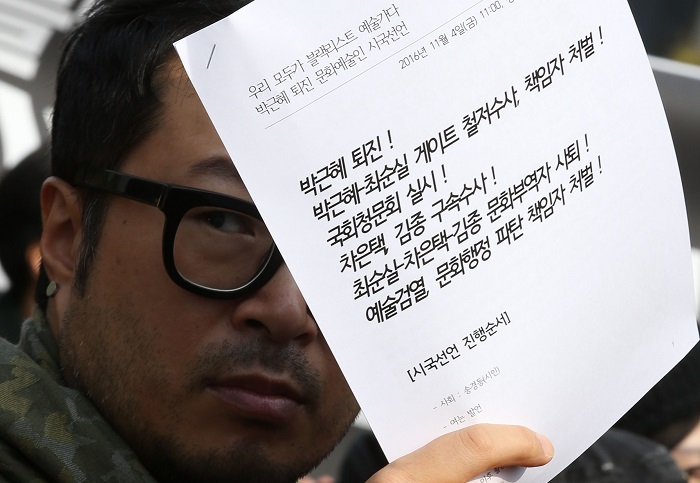 우리 모두가 블랙리스트 예술가다
박근혜 퇴진 문화예술인 시국선언
2016년 11월 4일(금) 11:00,
박근혜 퇴진 !
박근혜-최순실 게이트 철저수사, 책임자 처벌 !
국회청문회 실시 !
차은택, 김종 구속수사 !
최순실-차은택-김종 문화부역자 사퇴 !
예술검열, 문화행정 파탄 책임자 처벌 !
[시국선언 진행순서]
- 사회 : 송경동(시인)
- 여는 발언